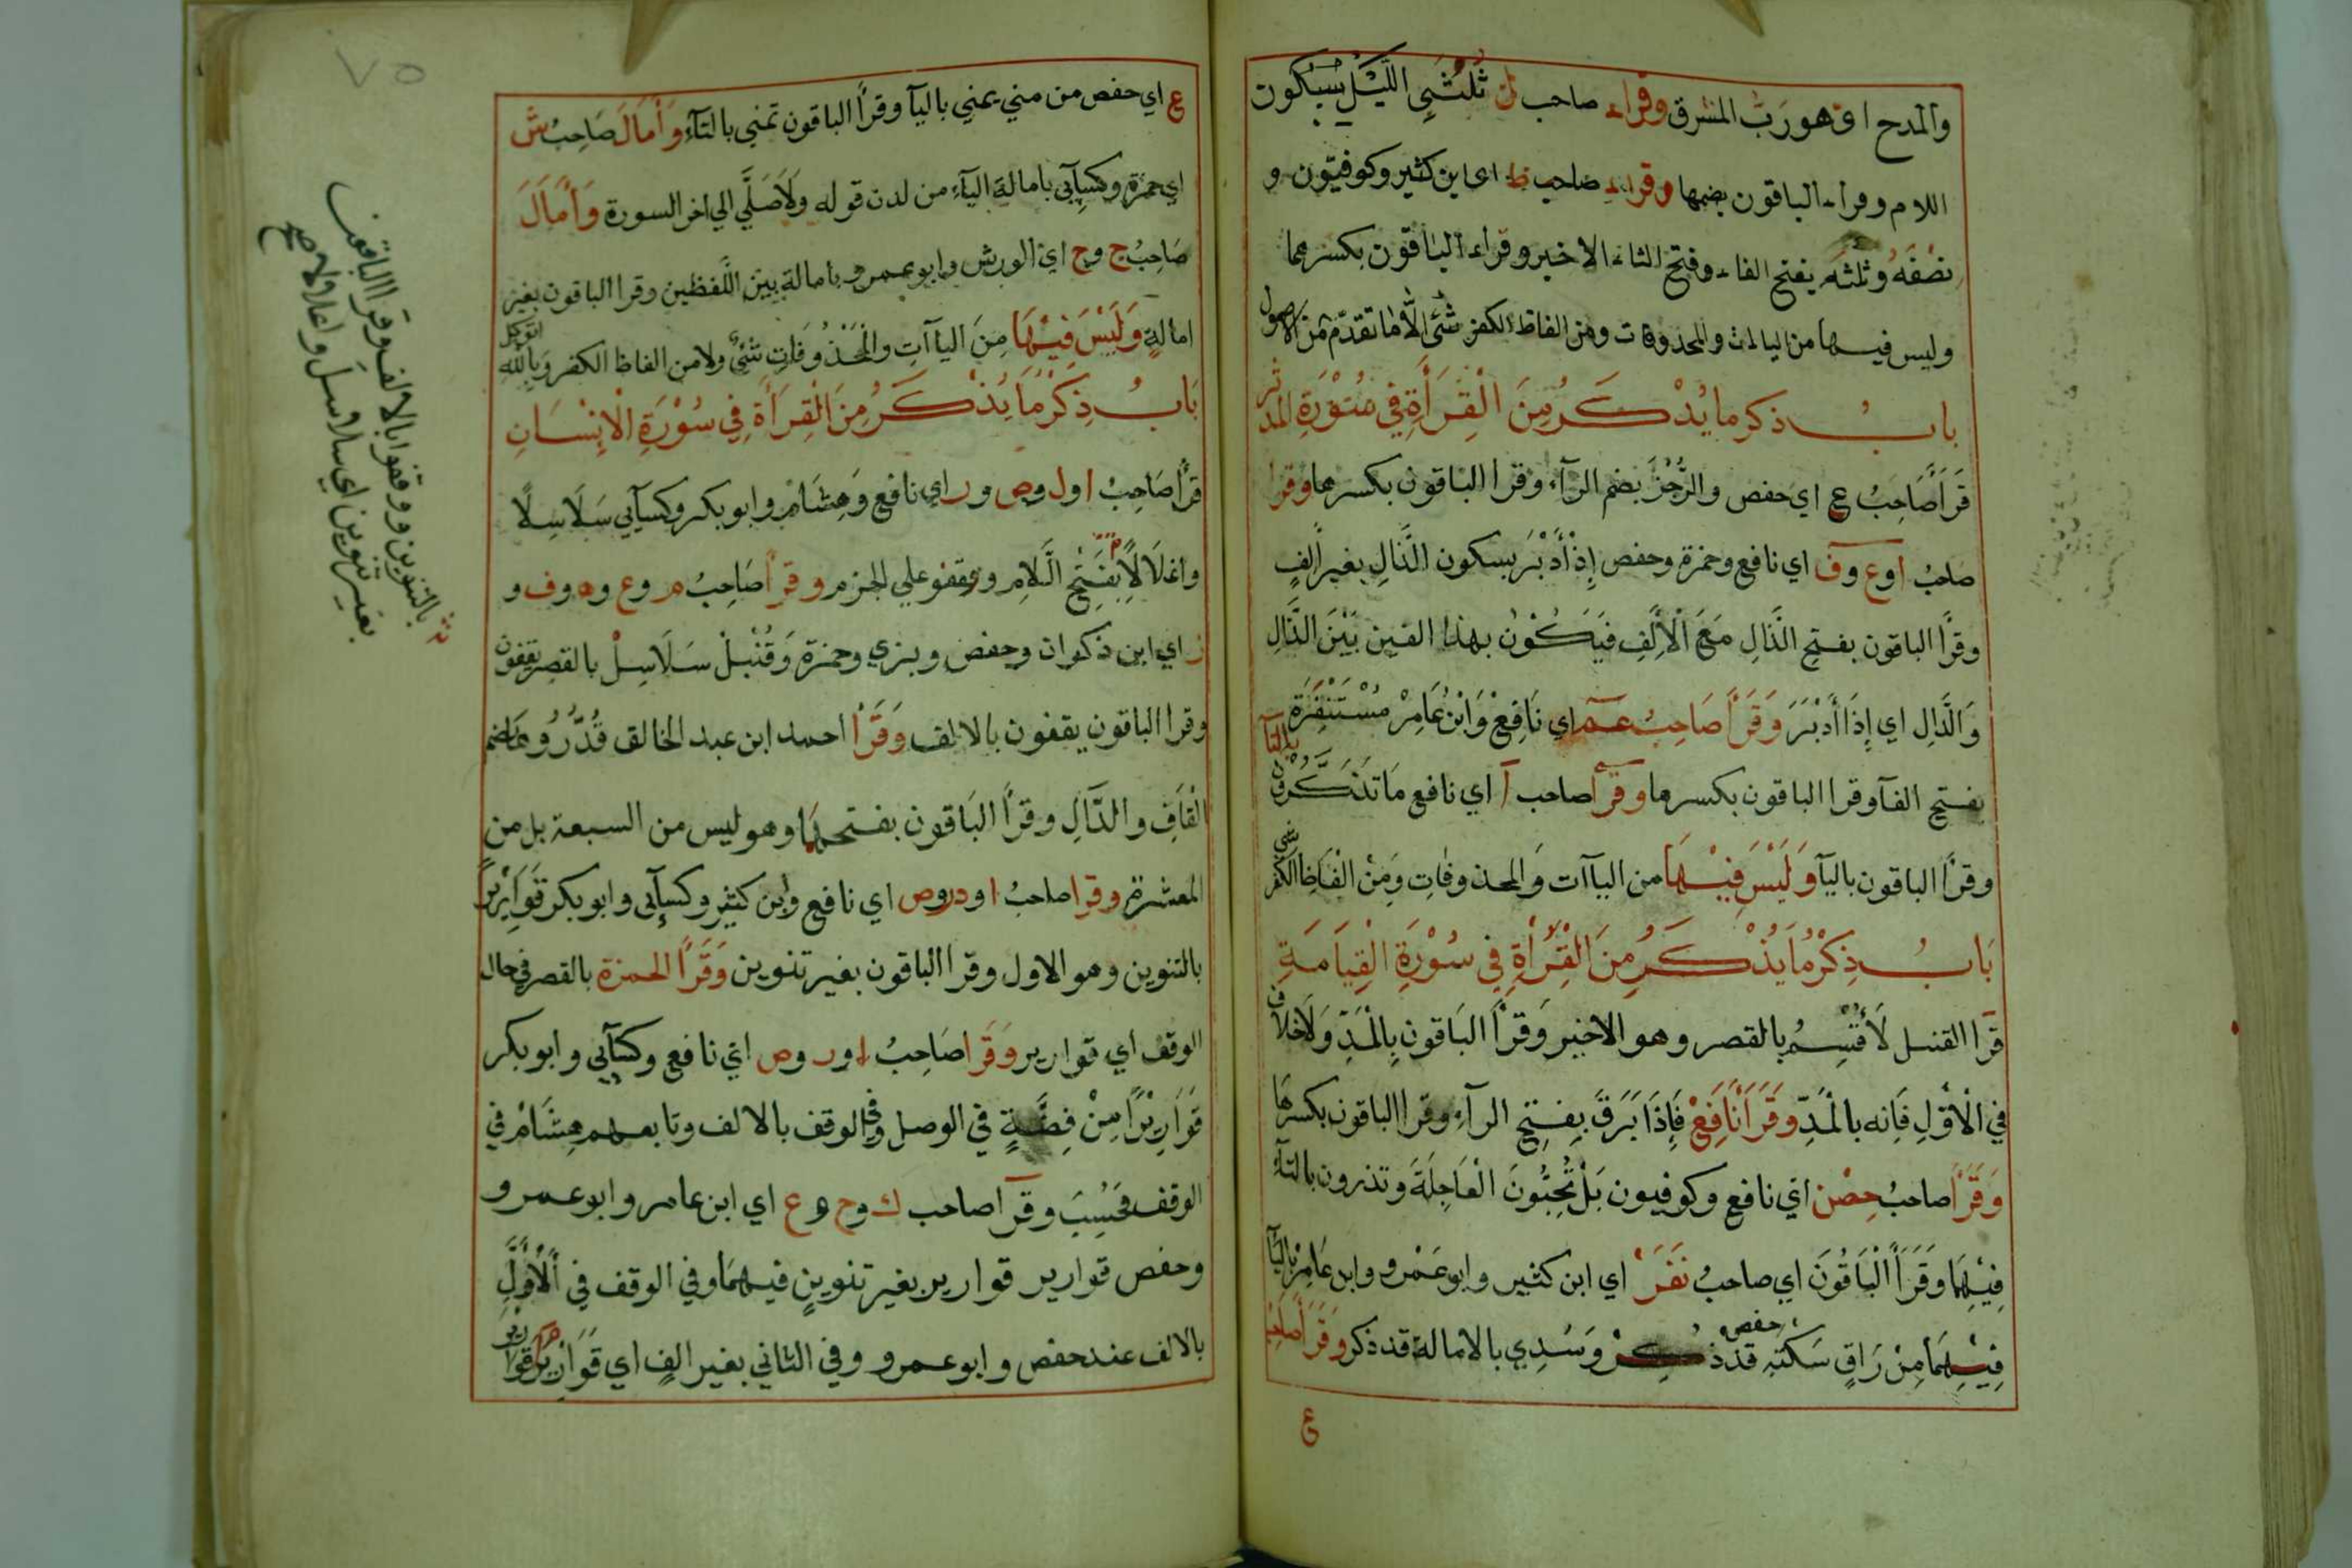 والمدح اى هو رَبّ المشرق وقراء صاحب ل ثُلْثَيِ اللَّيْلِ بسكون
اللام وقراء الباقون بضمها وقراء صاحب ظ اى ابن كثير وكوفيّون و
نصْفَهُ وثلثَه بفتح الفاء وفتح الثاء الاخير وقراء الباقون بكسرهما
وليس فيها من الياات والمحذوفات ومن الفاظ الكفر شئ الّا ما تقدّم من الاصول
باب ذكر ما يُذْكَرُ مِنَ الْقِرَأَةِ فِي سُوْرَةِ المدثر
قَرَأَ صَاحِبُ ع اي حفص والرُّجْزَ بضم الرآء وقرا الباقون بكسرها وقرا
صاحبُ ا وع وف اي نافع وحمزة وحفص إِذْ أَدْبَرَ بسكون الذَّالِ بغير الفٍ
وقرأ الباقون بفتح الذَّالِ مَعَ الْأَلِفِ فَيَكُوْنُ بهذا الفين بَيْنَ الذَّالِ
وَالدَّالِ اي إِذَا أَدْبَرَ وَقَرَأَ صَاحِبُ عَمّ اي نَافِعْ وَابْنُ عَامِرْ مُسْتَنْفَرَة
بفتح الفآ وقرا الباقون بكسرها وقرأ صاحب ا اي نافع مَا تَذَكَّرُوْن بالتآ
وقرأ الباقون باليآ وَلَيْسَ فِيْهَا من الياآت وَالمحذوفاتِ وَمِنْ الْفَاظِ الكفر شئ
بَابُ ذِكْرُ مَا يُذْكَرُ مِنَ الْقِرْأَةِ فِي سُوْرَةِ الْقِيَامَةِ
قرَأ القنبل لَأُقْسِمُ بالقصر وهو الاخير وَقرأ البَاقون بِالْمَدِّ وَلَا خلاف
في الْأَوّلِ فَانه بالْمَدِّ وقَرَأَ نَافِعْ فَإِذَا بَرَقَ بِفتحِ الرآءِ وقرا الباقون بكسرها
وَقَرَأَ صاحبُ حِصْن اي نافع وكوفيون بَلْ تُحِبُّونَ الْعَاجِلَةَ وتذرون بالتآء
فِيْهِمَا وقَرَأَ الْبَاقُوْنَ اي صاحبُ نَفَرْ اي ابن كثير وابو عَمْرو وابن عَامِرْ باليآ
فِيْهِمَا مِنْ رَاقٍ سَكْتهِ حفص قد ذكر وَسُدِي بالامالة قد ذكر وَقَرَأَ صَاحِبُ
ع
٧٥
ع اي حفص من مني يمني باليآ وقرأ الباقون تمني بالتآء وَأَمَالَ صَاحِبُ ش
اي حمزة وكسآئي بامالة اليآء من لدن قوله وَلَاصَلَّي الي اخر السورة وَأَمَالَ
صَاحِبُ ج وح اي الورش وابو عمرو بامالة بين اللَّفظين وقرا الباقون بغير
امالةٍ وَلَيْسَ فِيْهَا مِنَ الياآتِ والْمَحْذُوفَاتِ شَئٌ ولا من الفاظ الكفر وَبِاللّهِ اتوكل
بَابُ ذِكْرُ مَا يُذْكَرُ مِنَ الْقِرَأَة فِي سُوْرَةِ الْإِنْسَانِ
قرَأَ صَاحِبُ ا ول وص ور اي نافع وَهِشَام وابو بكر وكسآئي سَلَاسِلًا
واغلَالًا بفَتْحِ اللَّامِ ووقفو علي الجزم وقرأ صَاحِبُ م وع وه وف و
ز اي ابن ذكوان وحفص وبزي وحمزة وَقُنْبلْ سَلَاسِلْ بالقصر يقفون
وقرا الباقون يقفون بالالف وَقَرَأَ احمد ابن عبد الخالق قُدِّرُوْهَا بضم
القَافِ والدَّالِ وقرأ البَاقون بفتحهما وهو ليس من السبعة بل من
المعشرة وقرا صاحبُ ا ود ور وص اي نافع وابن كثير وكسآئي وابو بكر قَوَارِيْرًا
بالتنوين وهو الاول وقرا الباقون بغير تنوين وَقَرَأَ الحمزة بالقصر في حال
الوقف اي قوارير وَقَرَا صَاحِبُ ا ور وص اي نافع وكسآئي وابو بكر
قَوَارِيْرًا مِنْ فِضَّةٍ في الوصل وفي الوقف بالالف وتابعهم هِشَامْ في
الوقف فحَسْبَ وقرَأ صاحب ك وح وع اي ابن عامر وابو عمرو
وحفص قوارير قوارير بغير تنوينٍ فيهمَا وفي الوقف في الْأَوَّلِ
بالالف عند حفص وابو عمرو وفي الثاني بغير الفٍ اي قَوَارِيْرَا قوارير
بالتنوين ووقفوا بالالف وقرا الباقون
بغير تنوين اي سلاسل واغلالا صح